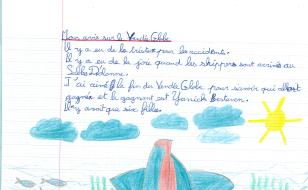 Mon avis sur le Vendée Globe
Il y a eu de la tristesse pour les accidents.
Il y a eu de la joie quand les skippers sont arrivés au
Sables D'olonne.
J'ai aimé la fin du Vendée Globe pour savoir qui allait
gagner et le gagnant est Yanick Bestaven.
Il y avait que six filles.